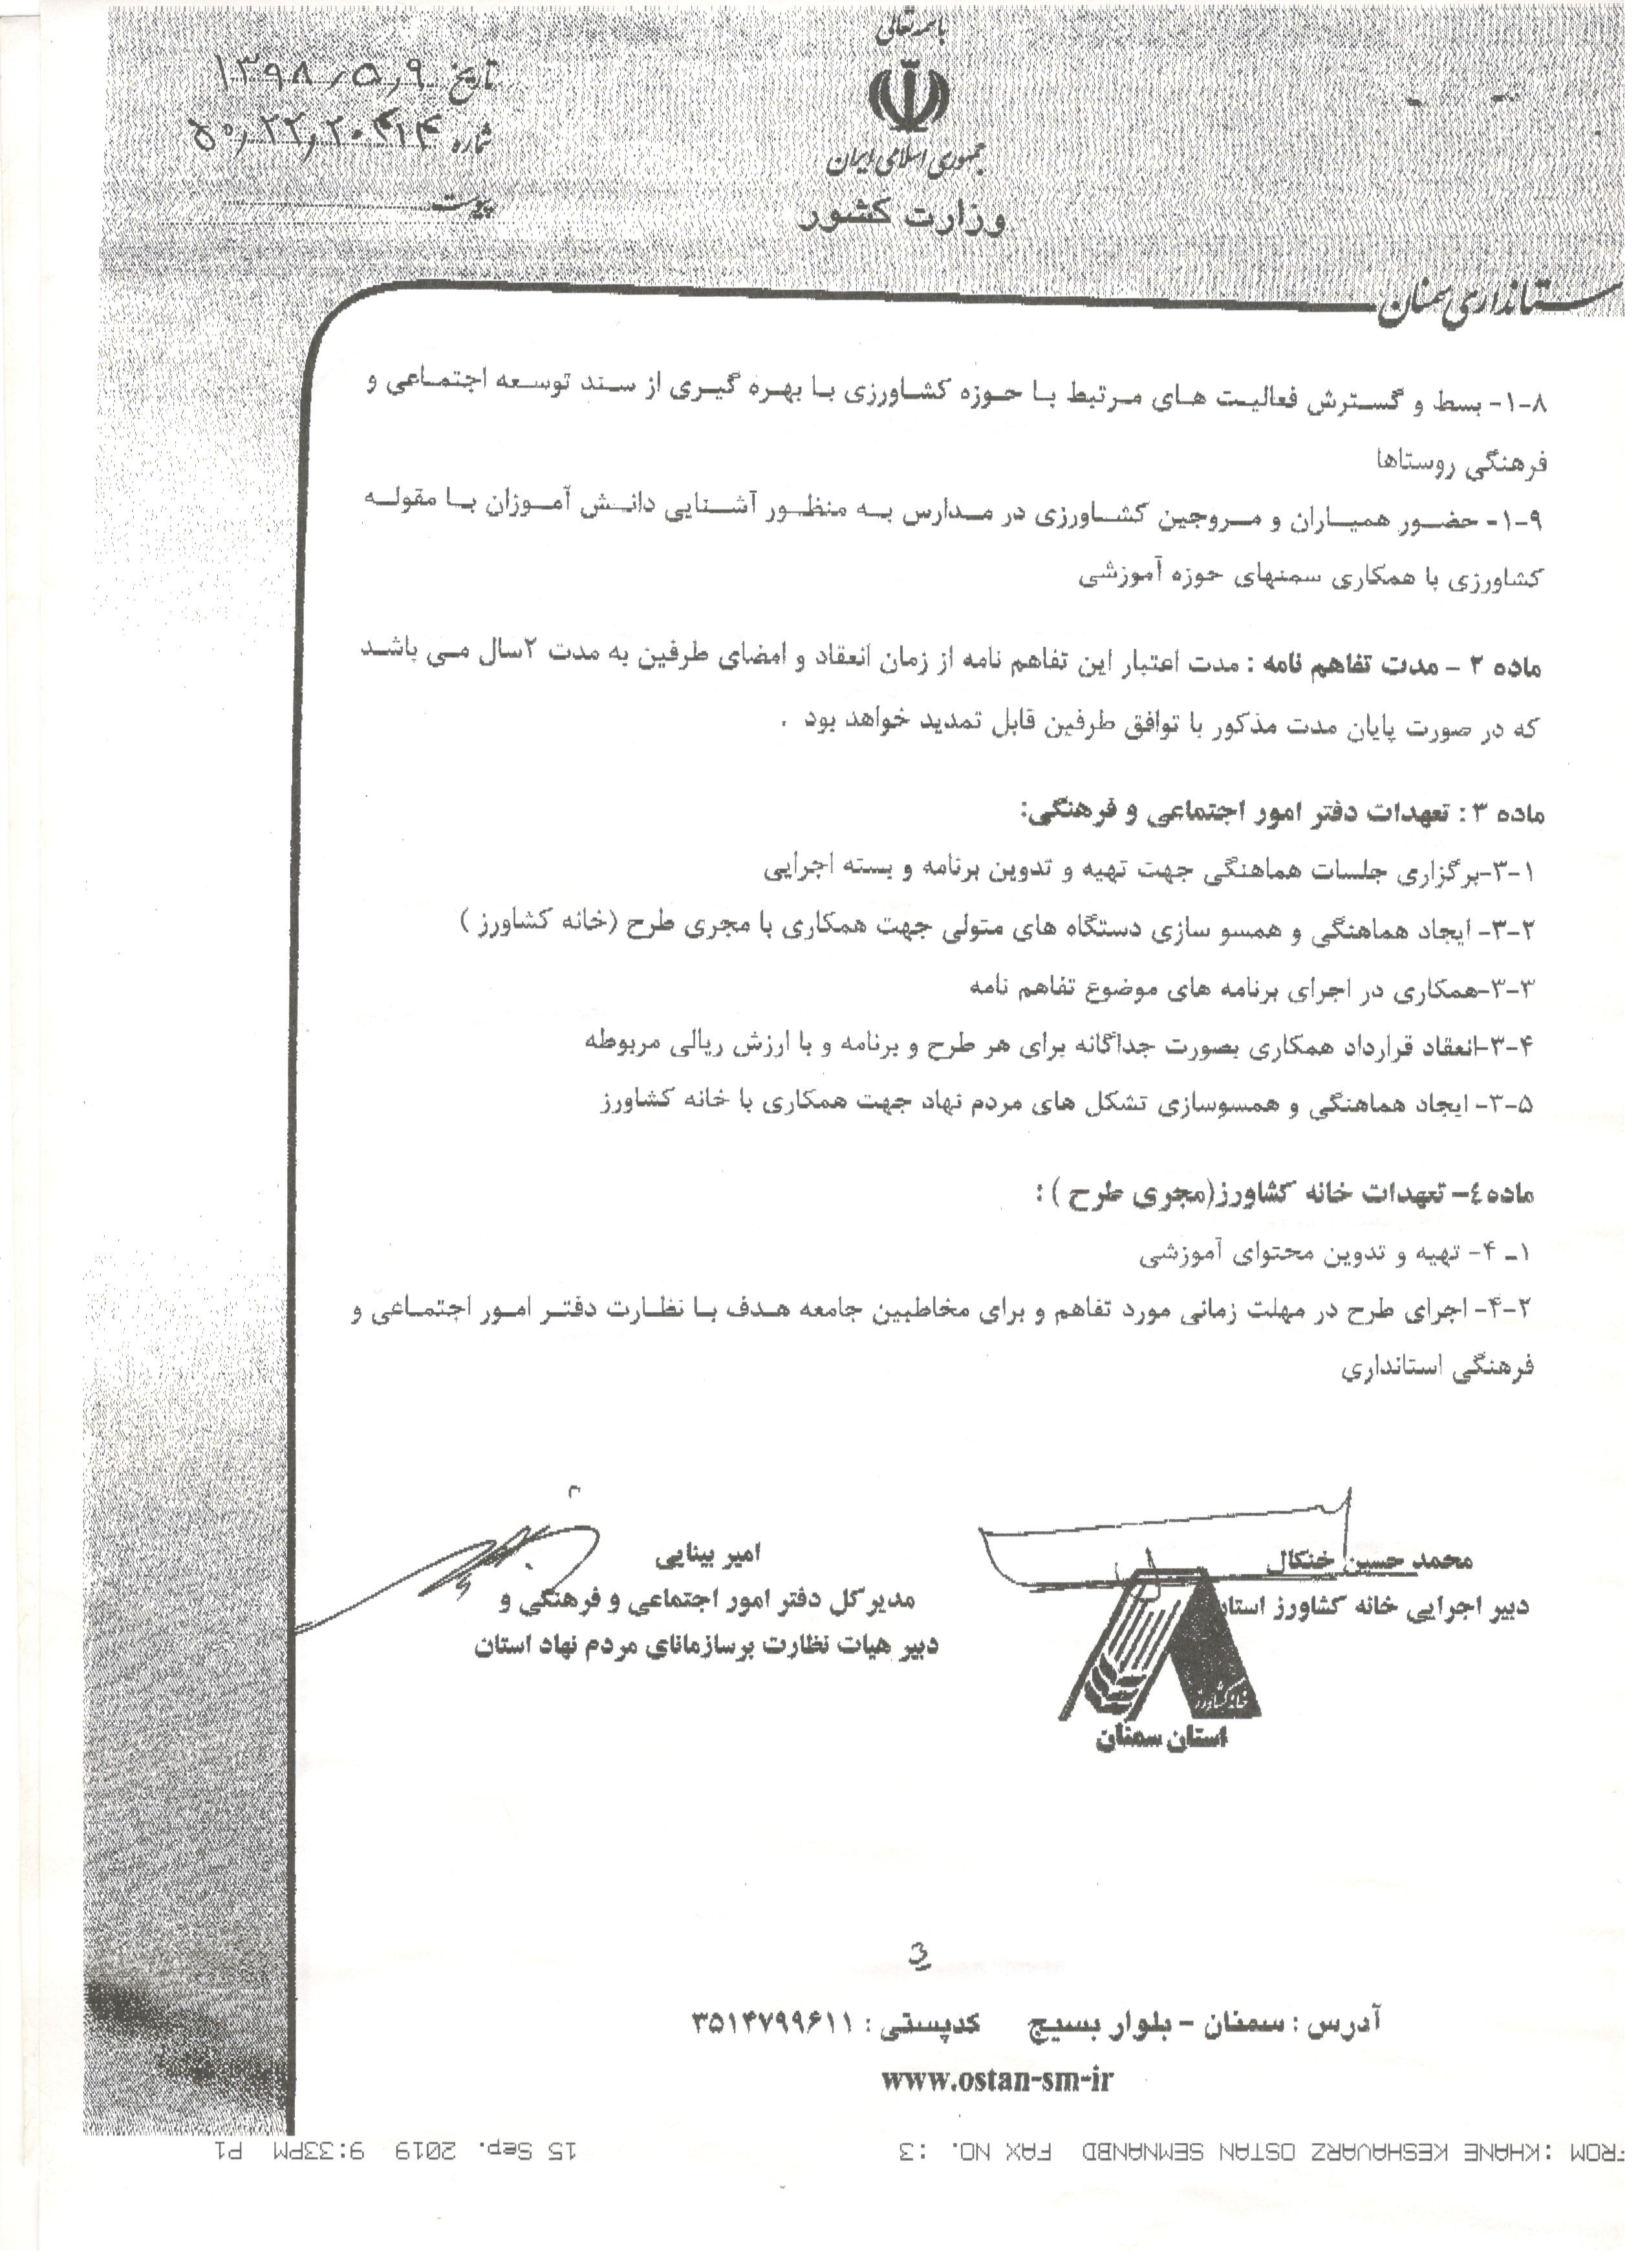 باسمه تعالی
جمهوری اسلامی ایران
وزارت کشور
استانداری سمنان
تاریخ ۱۳۹۸/۵/۹
شماره
پیوست
۱-۸- بسط و گسترش فعالیت های مرتبط با حوزه کشاورزی با بهره گیری از سند توسعه اجتماعی و
فرهنگی روستاها
۱-۹- حضور همیاران و مروجین کشاورزی در مدارس به منظور آشنایی دانش آموزان با مقوله
کشاورزی با همکاری سمنهای حوزه آموزشی
ماده ۲ - مدت تفاهم نامه : مدت اعتبار این تفاهم نامه از زمان انعقاد و امضای طرفین به مدت ۲سال می باشد
که در صورت پایان مدت مذکور با توافق طرفین قابل تمدید خواهد بود .
ماده ۳ : تعهدات دفتر امور اجتماعی و فرهنگی:
۳-۱-برگزاری جلسات هماهنگی جهت تهیه و تدوین برنامه و بسته اجرایی
۳-۲- ایجاد هماهنگی و همسو سازی دستگاه های متولی جهت همکاری با مجری طرح (خانه کشاورز )
۳-۳-همکاری در اجرای برنامه های موضوع تفاهم نامه
۳-۴-انعقاد قرارداد همکاری بصورت جداگانه برای هر طرح و برنامه و با ارزش ریالی مربوطه
۳-۵- ایجاد هماهنگی و همسوسازی تشکل های مردم نهاد جهت همکاری با خانه کشاورز
ماده٤- تعهدات خانه کشاورز(مجری طرح ) :
۱ـ ۴- تهیه و تدوین محتوای آموزشی
۴-۲- اجرای طرح در مهلت زمانی مورد تفاهم و برای مخاطبین جامعه هدف با نظارت دفتر امور اجتماعی و
فرهنگی استانداری
محمد حسین خنکال
دبیر اجرایی خانه کشاورز استان
خانه کشاورز
استان سمنان
امیر بینایی
مدیرکل دفتر امور اجتماعی و فرهنگی و
دبیر هیات نظارت برسازمانای مردم نهاد استان
3
آدرس : سمنان - بلوار بسیج کدپستی : ۳۵۱۴۷۹۹۶۱۱
www.ostan-sm-ir
FROM :KHANE KESHAVARZ OSTAN SEMNANBD FAX NO. :3 15 Sep. 2019 9:33PM P1